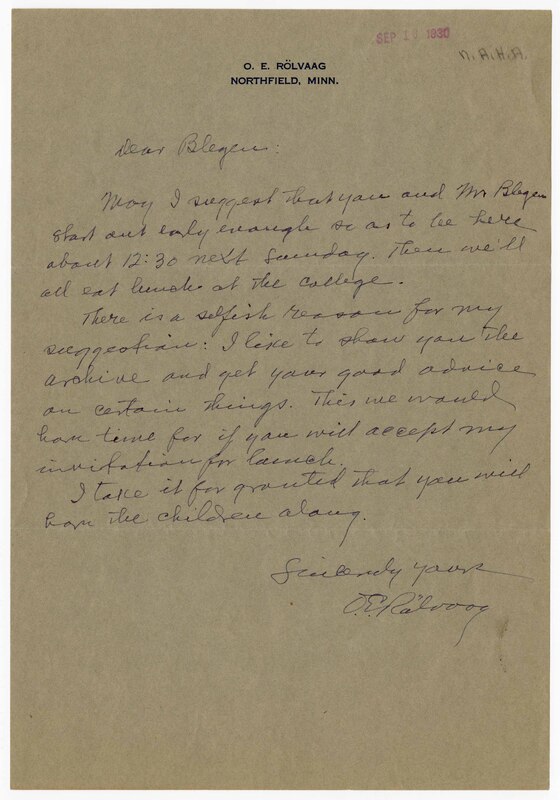 SEP 1 1930
N.A.H.A.
O. E. RÖLVAAG
NORTHFIELD, MINN.
Dear Blegen:
May I suggest that you and Mrs Blegen
start out early enough so as to be here
about 12:30 next Sunday. Then we'll
all eat lunch at the college.
There is a selfish reason for my
suggestion: I like to show you the
archive and get your good advice
on certain things. This we would
have time for if you will accept my
invitation for lunch.
I take it for granted that you will
have the children along.
Sincerely yours
O.E. Rölvaag